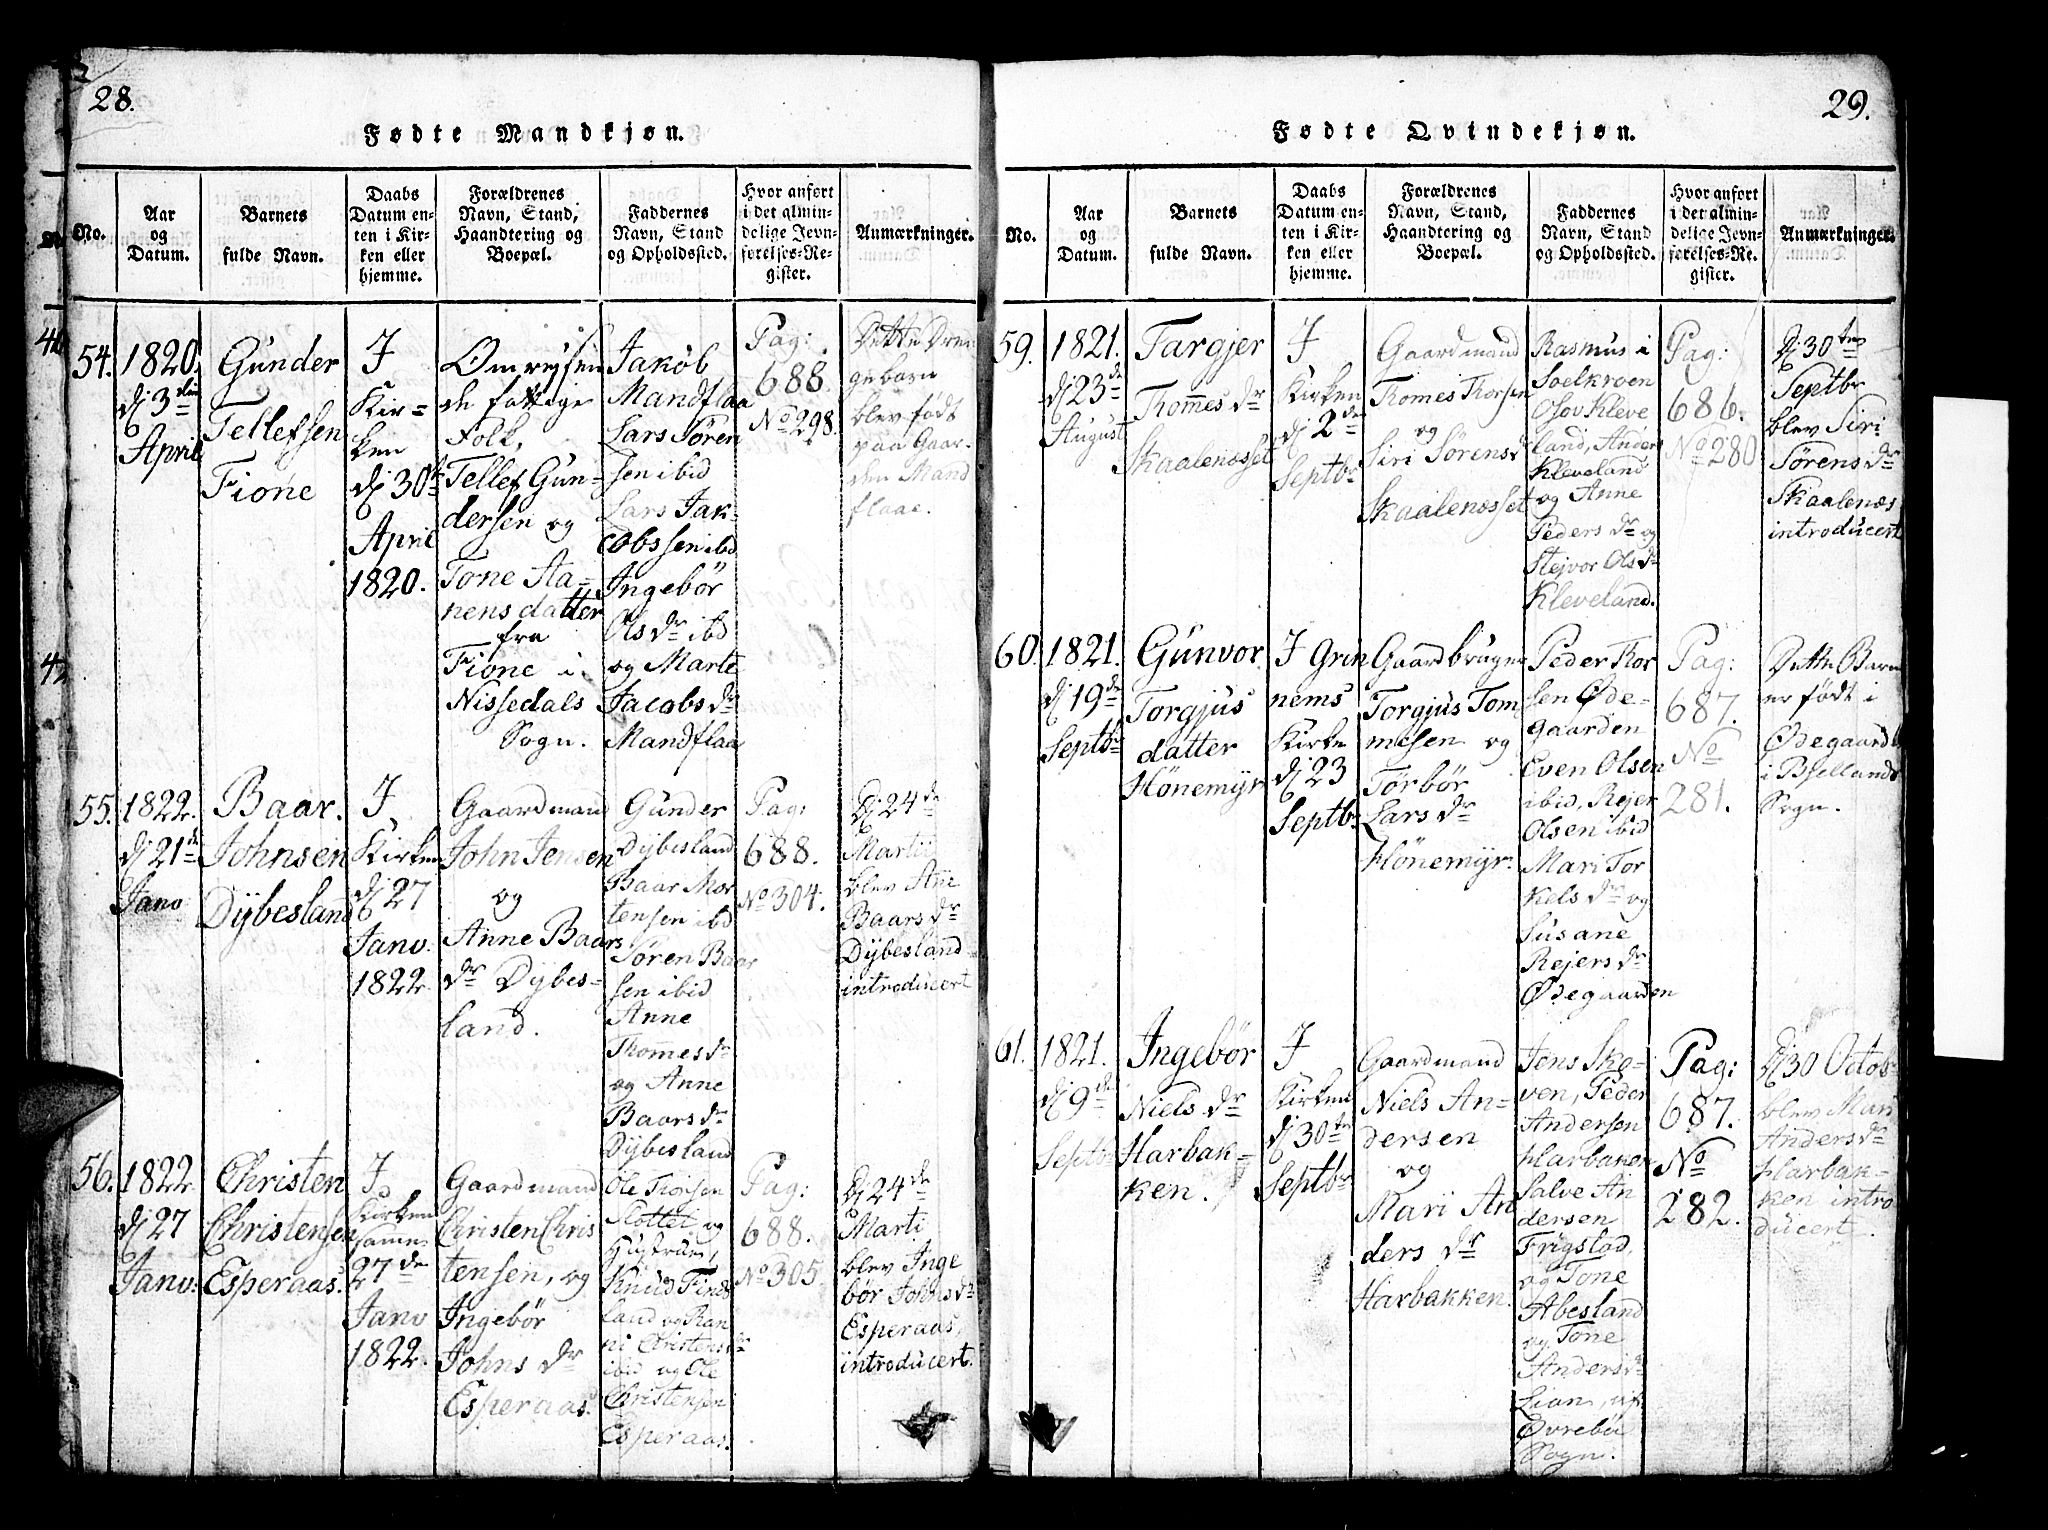 28.
Fødte Mandkjøn.
No.
Aar
og
Datum.
Barnets
fulde Navn.
Daabs
Datum en-
ten i Kir-
ken eller
hjemme.
Forældrenes
Navn, Stand,
Haandtering og
Boepæl.
Faddernes
Navn, Stand
og Opholdssted.
Hvor anført
i det almin-
delige Jevn-
førelses-Re-
gister.
Anmærkninger.
54.
1820.
dj 3die
April
Gunder
Tellefsen
Fione
I
Kir=
ken
dj 30te
April
1820.
Omreysen
de fattige
Folk,
Tellef Gun-
dersen og
Tone Aa-
nensdatter
fra
Fione i
Nissedals
Sogn.
Jakob
Mandflaa
Lars Søren
sen ibid
Lars Jak-
cobssen ibd
Ingebør
Ols dr ibd
og Marte
Jacobs dr
Mandflaa
Pag:
688.
No 298.
Dette Dren
gebarn
blev født
paa Gaar-
den Mand
flaae.
55.
1822.
dj 21de
Janv
Baar.
Johnsen
Dÿbesland
I
Kirken
dj 27
Janv.
1822.
Gaardmand
John Jensen
og
Anne Baars
dr Dÿbes-
land.
Gunder
Dÿbesland
Baar Mor
tensen ibd
Søren Baar
sen ibid
Anne
Thommes dr
og Anne
Baars dr
Dÿbesland
Pag:
688.
No 304.
Dj 24de
Martii
blev Ane
Baars dr
Dÿbesland
introducert
56.
1822
dj 27
Janv:
Christen
Christensen
Esperaas.
I
Kirken
samme
27de
Janv
1822.
Gaardmand
Christen Chris
tensen, og
Ingebør
Johns dr
Esperaas.
Ole Torsen
Slottet og
Hustrue,
Knud Finds
land og Ran
ni Christens dr
ibid og Ole
Christensen
Esperaas.
Pag:
688.
No 305.
Dj 24de
Marti
blev Inge
bør Johns dr
Esperaas,
introducert.
29.
Fødte Qvindekjøn.
No.
Aar
og
Datum.
Barnets
fulde Navn.
Daabs
Datum en-
ten i Kir-
ken eller
hjemme.
Forældrenes
Navn, Stand,
Haandtering og
Boepæl.
Faddernes
Navn, Stand
og Opholdssted.
Hvor anført
i det almin-
delige Jevn-
førelses-Re-
gister.
Anmærkninger.
59.
1821.
dj 23de
August
Targjer
Thommes dr
Skaalenæsset
I
Kirken
dj 2de
Septbr
Gaardmand
Thomes Thorsen
og
Siri Sørensd
Skaalenæsset
Rasmus i
Soelkroen
Osov Kleve
land, Anders
Kleveland
og Anne
Peders dr og
Stejvor Ols dr
Kleveland.
Pag:
686.
No 280
Dj 30te
Septbr
blev Siri
Sørens dr
Skaalenæs
introducert
60.
1821.
dj 19de
Septbr
Gunvor
Torgjus
datter
Hönemÿr
I Grin
nems
Kirke
dj 23
Septb.
Gaardbruger
Torgjus Tom
mesen og
Torbør
Lars dr
Hönemÿr.
Peder Thor
sen Øde-
gaarden
Even Olsen
ibid, Rejer
Olsen ibid
Mari Tor
kels dr og
Susane
Rejers dr
Ødegaarden
Pag:
687.
No
281.
Dette Barn
er født i
Ødegaard
i Bjellands
Sogn.
61.
1821.
dj 9de
Septb.
Ingebør
Niels dr
Harbak-
ken.
I
Kirken
dj 30te
Septbr
Gaardmand
Niels An-
dersen
og
Mari An
ders dr
Harbakken.
Jens Sko-
ven, Peder
Andersen
Harbaken
Salve An
dersen
Frigstad,
og Tone
Abesland
og Tone
Anders dr
Lian, af
Øvrebøe
Sogn.
Pag:
687.
No
282.
Dj 30 Octob:
blev Mari
Anders dr
Harbak-
ken intro
ducert.